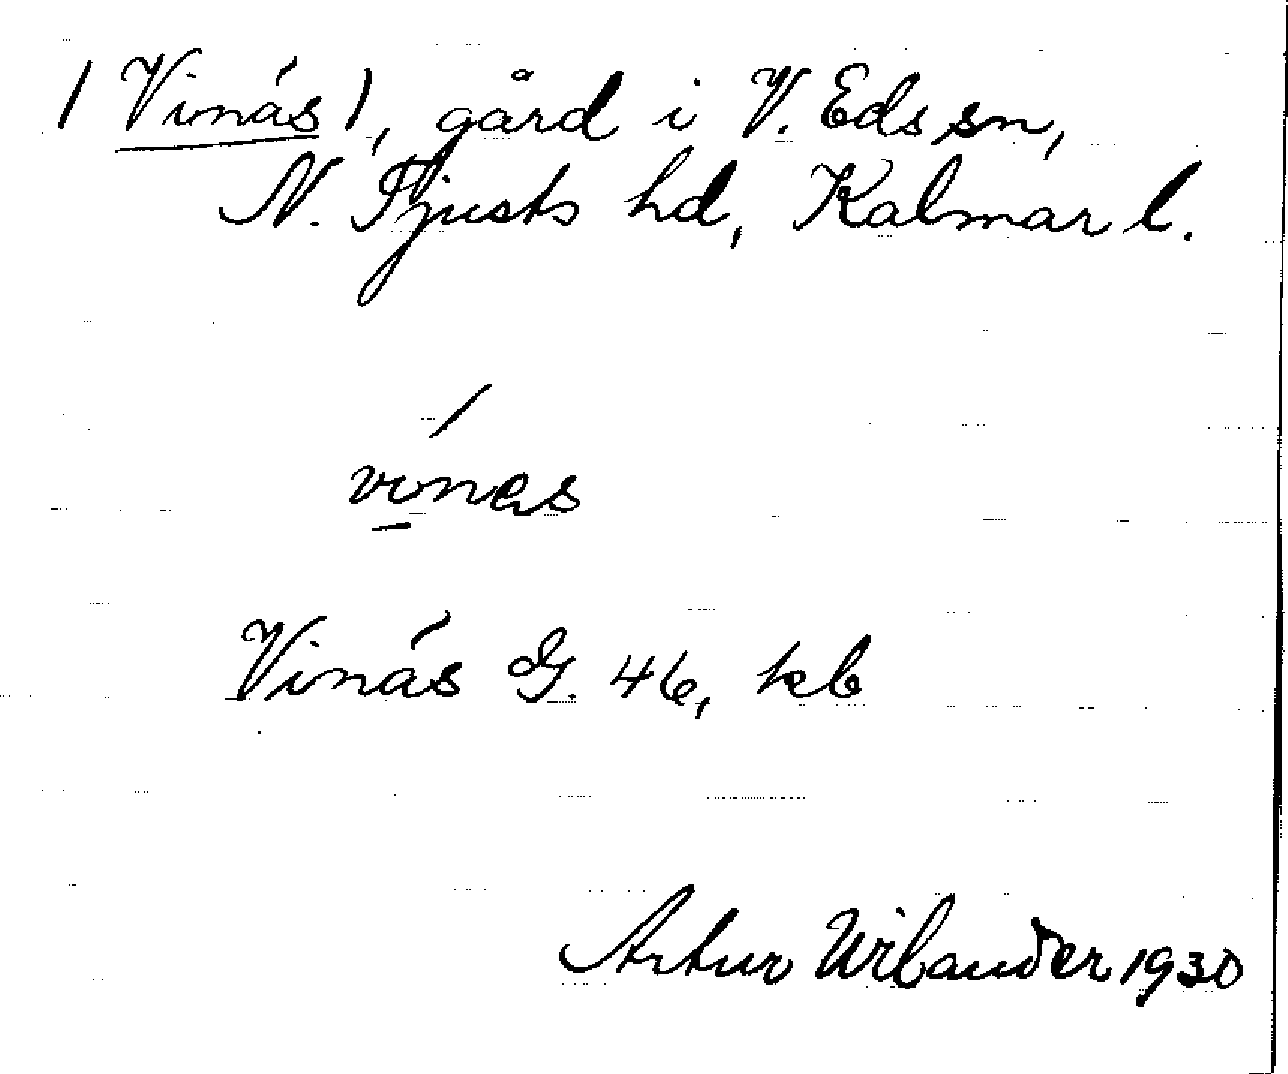 / Vinás /, gård i V. Eds sn,
N. Tjusts hd, Kalmar l.
vinɑs
Vinás G. 46, kb
Artur Wilander 1930